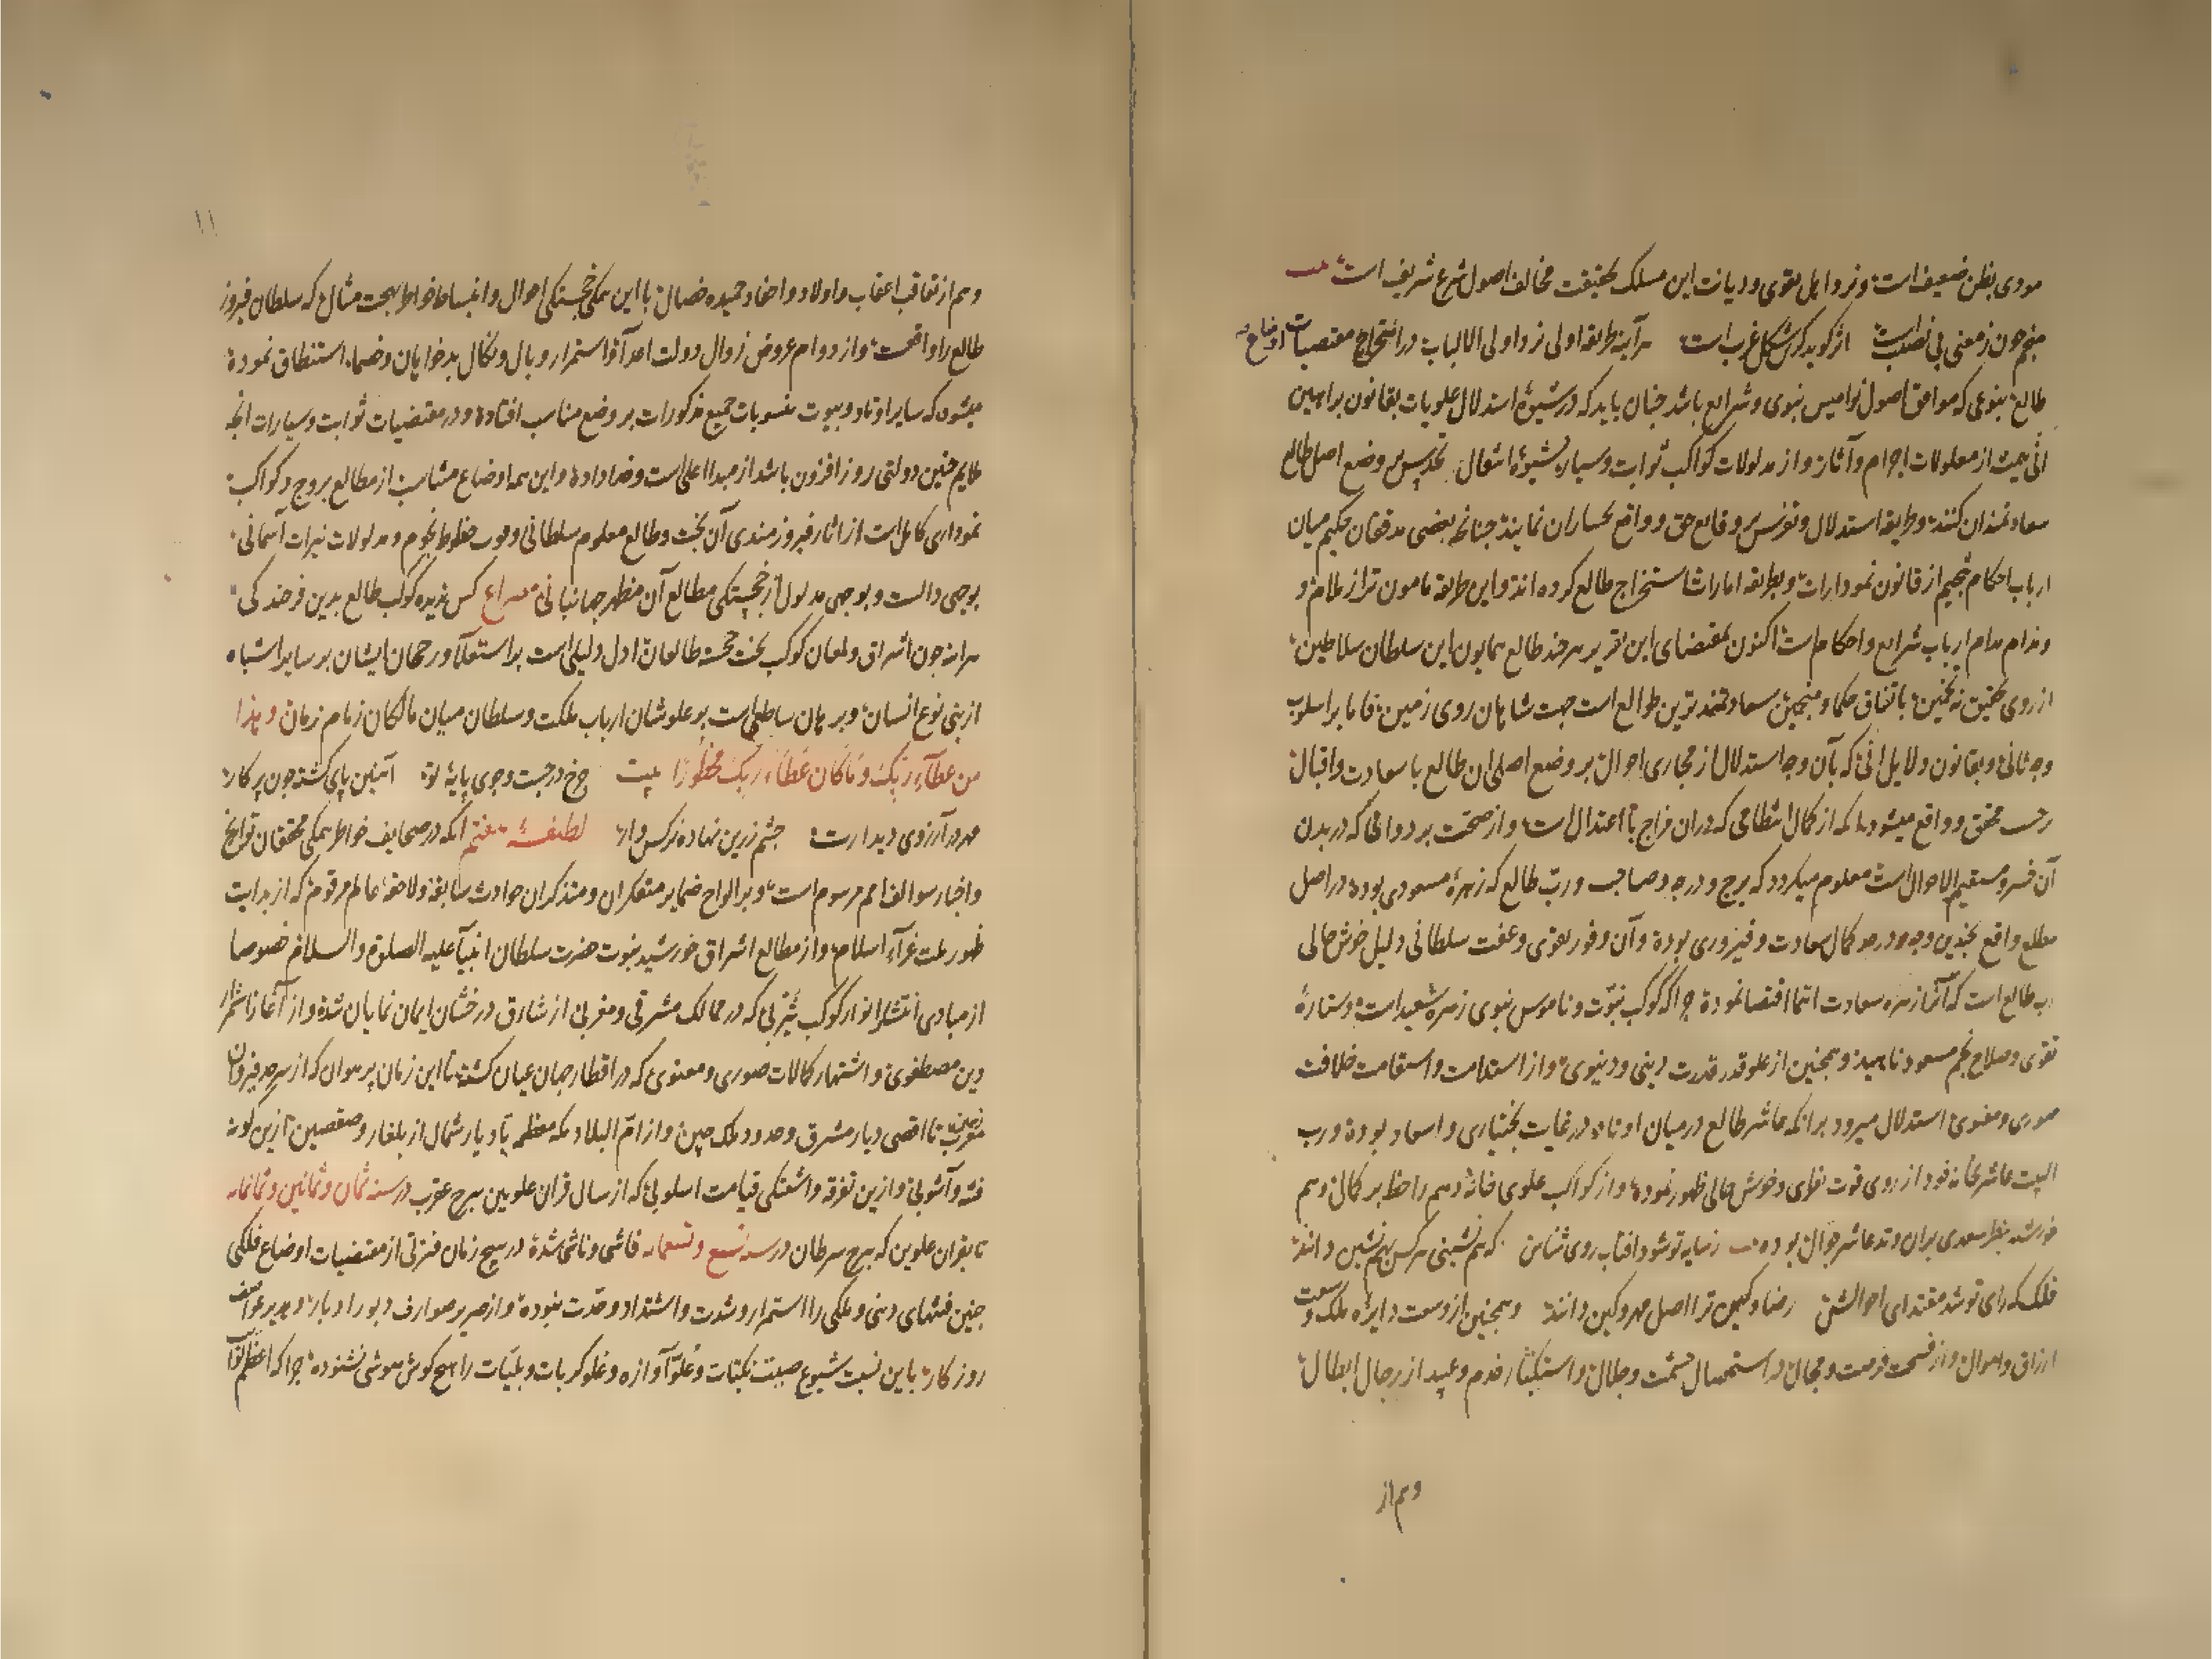 مودی بظن ضعیف است و نزد اهل تقوی و دیانت این مسلک بحقیقت مخالف اصول شرع شریف است بیت
منجم چون ز معنی بی نصیب است اگر گوید کرش شکل غریب است هر آینه طریقه اولی نزد اولی الالباب در استخراج مقتضیات اوضاع
طالع بنوعی که موافق اصول نوامیس نبوی و شرایع باشد چنان باید که در شیوه استدلال علویات بقانون براهین
انی همت از معلولات اجرام و آثار و از مدلولات کواکب ثوابت و سیاره بشیوه انتقال تحدس بر وضع اصل طالع
سعادتمندان کنند و طریقه استدلال و تفرس بر وقایع حق و واقع بختیاران نمایند چنانکه بعضی مدققان حکیم میان
ارباب احکام تنجیم از قانون نمودارات و بطریقه امارات استخراج طالع کرده اند و این طریقه مامون تر از ملام و
و ندام مدام ارباب شرایع و احکام است اکنون بمقتضای این تقریر هر چند طالع همایون این سلطان سلاطین
از روی تحقیق نه تخمین باتفاق حکما و منجمین سعادتمندترین طوالع است جهت شاهان روی زمین فاما بر اسلوب
وجه ثانی و بقانون دلایل انی که بآن وجه استدلال از مجاری احوال بر وضع اصلی ان طالع با سعادت و اقبال
محقق و واقع میشود بانکه از کمال انتظامی که دران مزاج با اعتدال است و از صحت بر دوامی که در بدن
آن خسرو مستقیم الاحوال است معلوم میکردد که برج و درجه و صاحب و رب طالع که زهره مسعودی بوده در اصل
مطلع واقع بچندین وجوه در حد کمال سعادت و فیروزی بوده و آن وفور تقوی و عفت سلطانی دلیل خوش حالی
رب طالع است که آنرا زهره سعادت انتما اقتضا نموده چرا که کوکب نبوت و ناموس نبوی زهره سعید است و ستاره
تقوی و صلاح نجم مسعود ناهید و همچنین از علو قدر قدرت دینی و دنیوی و از استدامت و استقامت خلافت
صوری و معنوی استدلال میرود برانکه عاشر طالع در میان اوتاد در غایت بختیاری و اسعاد بوده و رب
البیت عاشر بخانه خود از روی قوت نظری و خوش حالی ظهور نموده و از کواکب علوی خانه دهم را حظ بر کمال و هم
خورشید بنظر سعدی بران وتد عاشر جوال بوده بیت ز سایه تو شود افتاب روی شناس که هم نشینی هر کس بهم نشین دانند
فلک که رای تو شد مقتدای احوالش رضا و کین ترا اصل مهر و کین دانند و همچنین از وسعت دایره ملک و سعت
ارزاق و اموال و از فسحت فرصت و مجال در استحصال حشمت و جلال و استکثار خدم و عبید از رجال ابطال
و هم از
۱۱
و هم از تعاقب اعقاب و اولاد و احفاد حمیده خصال با این همکی خجستکی احوال و انبساط خواطر بهجت مثال که سلطان فیروز
طالع را واقعست و از دوام عروض زوال دولت اعدآ و استمرار وبال و نکال بدخواهان و خصماء استنطاق نموده
میشود که سایر اوتاد و بیوت منسوبات جمیع مذکورات بر وضع مناسب افتاده و در مقتضیات ثوابت و سیارات انچه
ملایم چنین دولتی روز افزون باشد از مبدا اعلی است وضا داده و این همه اوضاع مناسب از مطالع بروج و کواکب
نموداری کامل است از اثار فیروزمندی آن بخت و طالع معلوم سلطانی و خوب حظوظ نجوم و مدلولات نیرات آسمانی
بوجهی دالست و بوجهی مدلول از خجستکی مطالع آن مظهر جهانبانی مصراع کس ندیده کوکب طالع بدین فرخندکی
هر اینه چون اشراق و لمعان کوکب بخت خجسته طالعان ادل دلیلی است بر استعلآ و رجحان ایشان بر سایر اشباه
از بنی نوع انسان و برهان ساطعی است بر علو شان ارباب ملکت و سلطان میان مالکان زمام زمان و هذا
من عطآء ربک و ما کان عطآء ربک محظورا بیت چرخ در جست و جوی پایه تو آتشین پای کشته چون پرکار
مهر در آرزوی دیدارت چشم زرین نهاده نرکس وار لطیفه هفتم انکه در صحایف خواطر همکی محققان تواریخ
و اخبار سوالف امم مرسوم است و بر الواح ضمایر متفکران و متذکران حوادث سابقه و لاحقه عالم مرقوم که از بدایت
ظهور ملت غرآء اسلام و از مطالع اشراق خورشید نبوت حضرت سلطان انبیآ علیه الصلوة و السلام خصوصا
از مبادی انتشار انوار کوکب یثربی که در ممالک مشرقی و مغربی از مشارق درخشان ایمان نمایان شده و از آغاز ناشمار
دین مصطفوی و اشتهار کمالات صوری و معنوی که در اقطار جهان عیان کشته تا این زمان پر هوان که از سرحد قیروان
مغرب زمین تا اقصی دیار مشرق و حدود ملک چین و از ام البلاد مکه معظمه تا دیار شمال از بلغار و صقصین ازین کونه
فتنه و آشوبی و ازین تفرقه و اشفتکی قیامت اسلوبی که از سال قران علویین ببرج عقرب در سنه ثمان و ثمانین و ثمانمایه
تا بقران علویین که ببرج سرطان در سنه تسع و تسعمایه فاشی و ناشی شده در هیچ زمان فترتی از مقتضیات اوضاع فلکی
چنین فتنهای دینی و ملکی را استمرار و شدت و اشتداد و حدت نبوده و از صریر صوارف دبور ادبار و هدیر عواصف
روزکار باین نسبت شیوع صیت نکبتات و علو آوازه و غلو کربات و بلیات را هیچ کوش هوشی نشنوده چرا که اعظم لوآ